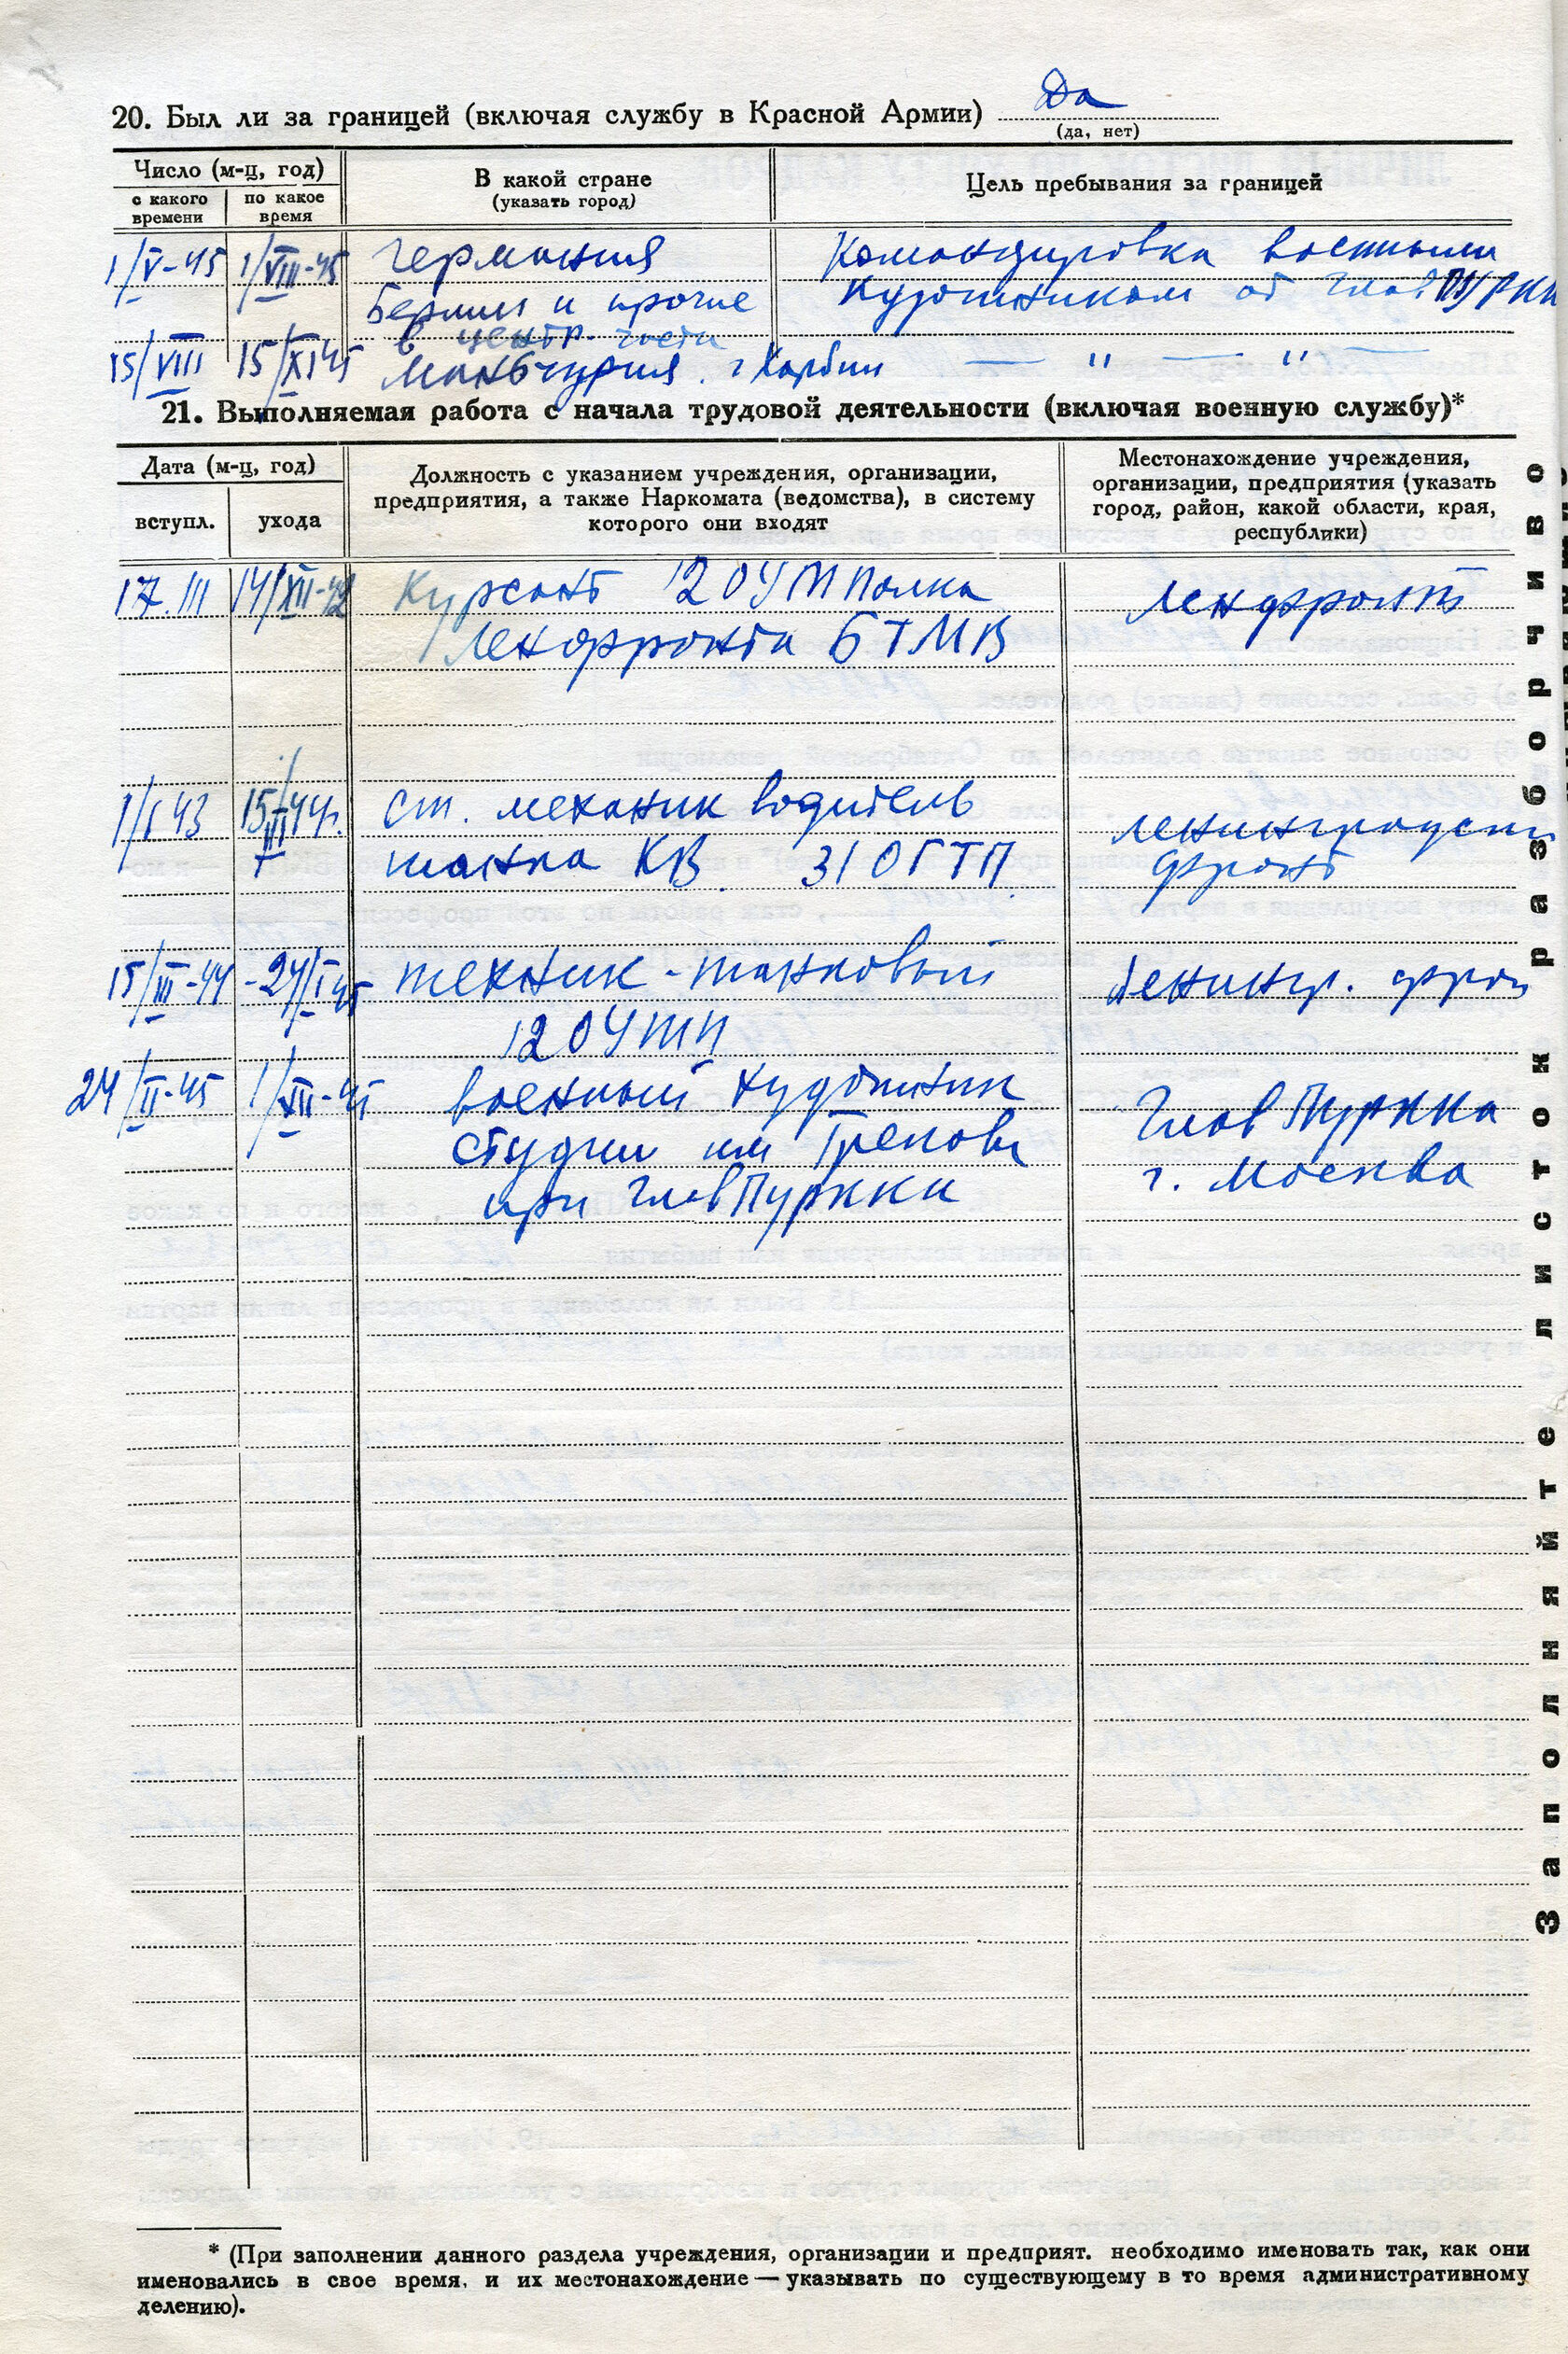 Да
20. Был ли за границей (включая службу в Красной Армии)
(да, нет)
Число (м-ц, год)
с какого времени
по какое время
В какой стране
(указать город)
Цель пребывания за границей
1/V-45 1/VIII-45 Германия Командировка военным
Берлин и прочие художником от Глав ПУРККА
в центр. части
15/VIII 15/XI 45 Маньчжурия. г Харбин — " — " —
21. Выполняемая работа с начала трудовой деятельности (включая военную службу)*
Дата (м-ц, год)
вступл.
ухода
Должность с указанием учреждения, организации,
предприятия, а также Наркомата (ведомства), в систему
которого они входят
Местонахождение учреждения,
организации, предприятия (указать
город, район, какой области, края,
республики)
17.III 14/XII-42 Курсант 12 ОУТПолка Ленфронт
Ленфронта БТМВ
1/I 43 15/III 44г. ст. механик водитель Ленинградский
танка КВ. 31 ОГТП. фронт
15/III-44 -24/I 45 техник-танковый Ленингр. фрон
12 ОУТП
24/II-45 1/XII-45 военный художник ГлавПУРККА
студии им Грекова г. Москва
при ГлавПУРККА
Заполняйте листок разборчиво
* (При заполнении данного раздела учреждения, организации и предприят. необходимо именовать так, как они
именовались в свое время, и их местонахождение — указывать по существующему в то время административному
делению).